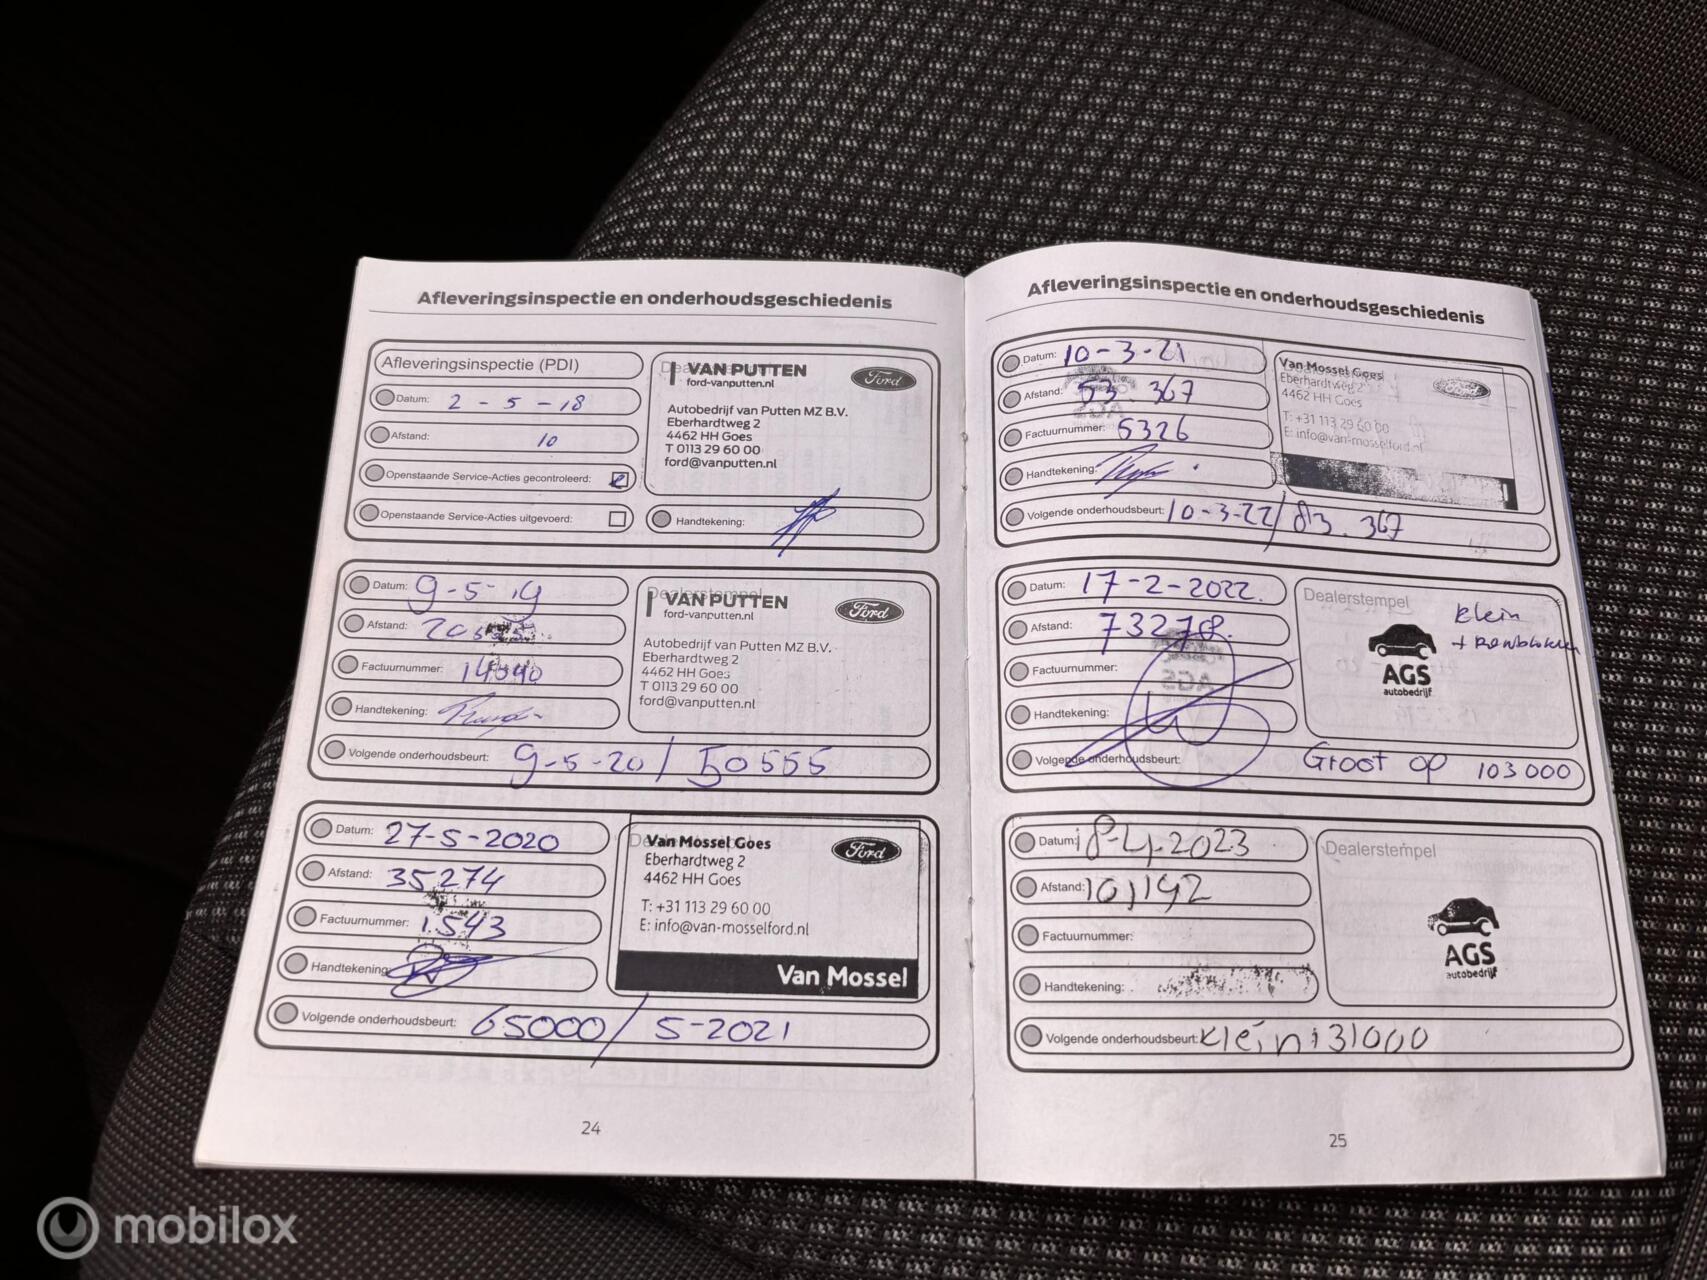 Afleveringsinspectie en onderhoudsgeschiedenis
Afleveringsinspectie (PDI)
Datum: 2 - 5 - 18
Afstand: 10
Openstaande Service-Acties gecontroleerd:
Openstaande Service-Acties uitgevoerd:
VAN PUTTEN
ford-vanputten.nl
Ford
Autobedrijf van Putten MZ B.V.
Eberhardtweg 2
4462 HH Goes
T 0113 29 60 00
ford@vanputten.nl
Handtekening:
Datum: 9-5-19
Afstand:
Factuurnummer:
Handtekening:
Dealerstempel
VAN PUTTEN
ford-vanputten.nl
Ford
Autobedrijf van Putten MZ B.V.
Eberhardtweg 2
4462 HH Goes
T 0113 29 60 00
ford@vanputten.nl
Volgende onderhoudsbeurt: 9-5-20 / 50555
Datum: 27-5-2020
Afstand: 35.274
Factuurnummer: 1.543
Handtekening:
Van Mossel Goes
Eberhardtweg 2
4462 HH Goes
Ford
T: +31 113 29 60 00
E: info@van-mosselford.nl
Van Mossel
Volgende onderhoudsbeurt: 65000 / 5-2021
24
Afleveringsinspectie en onderhoudsgeschiedenis
Datum: 10-3-21
Afstand: 53.367
Factuurnummer: 5326
Handtekening:
Van Mossel Goes
Eberhardtweg 2
4462 HH Goes
T: +31 113 29 60 00
E: info@van-mosselford.nl
Volgende onderhoudsbeurt: 10-3-22 / 83.367
Datum: 17-2-2022.
Afstand: 73278.
Factuurnummer:
Handtekening:
Dealerstempel
klein
+ Remblokken
AGS
autobedrijf
Volgende onderhoudsbeurt: Groot op 103000
Datum: 18-4-2023
Afstand: 101,192
Factuurnummer:
Handtekening:
Dealerstempel
AGS
autobedrijf
Volgende onderhoudsbeurt: klein 131000
25
mobilox